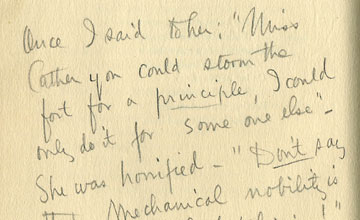 Once I said to her; "Miss
Cather you could storm the
fort for a principle, I could
only do it for some one else" –
She was horrified – "Don't say
that. Mechanical nobility is